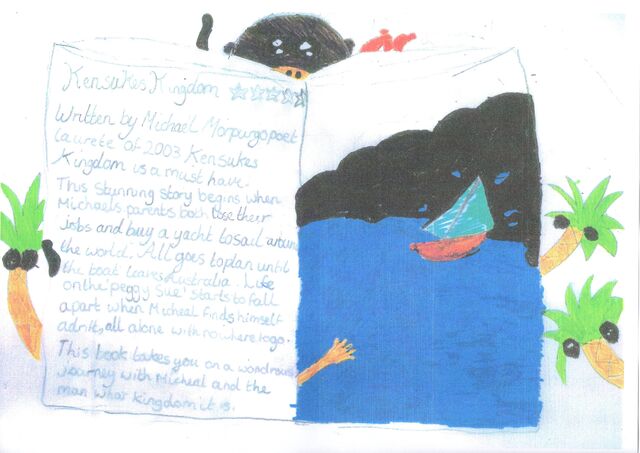 Kensukes Kingdom
Written by Michael Morpurgo poet
laurete of 2003 Kensukes
Kingdom is a must have.
This stunning story begins when
Michaels parents both lose their
jobs and buy a yacht to sail around
the world. All goes to plan until
the boat leaves Australia. Life
on the 'peggy sue' starts to fall
apart when Micheal finds himself
adrift, all alone with nowhere to go.
This book takes you on a wondrous
journey with Micheal and the
man whos kingdom it is.